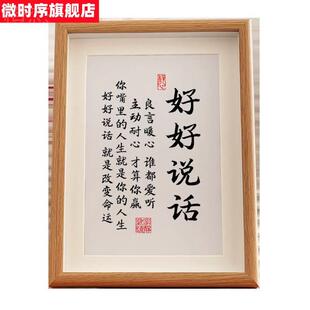 微时序旗舰店
好好说话
良言暖心 谁都爱听
主动耐心 才算你赢
你嘴里的人生就是你的人生
好好说话 就是改变命运